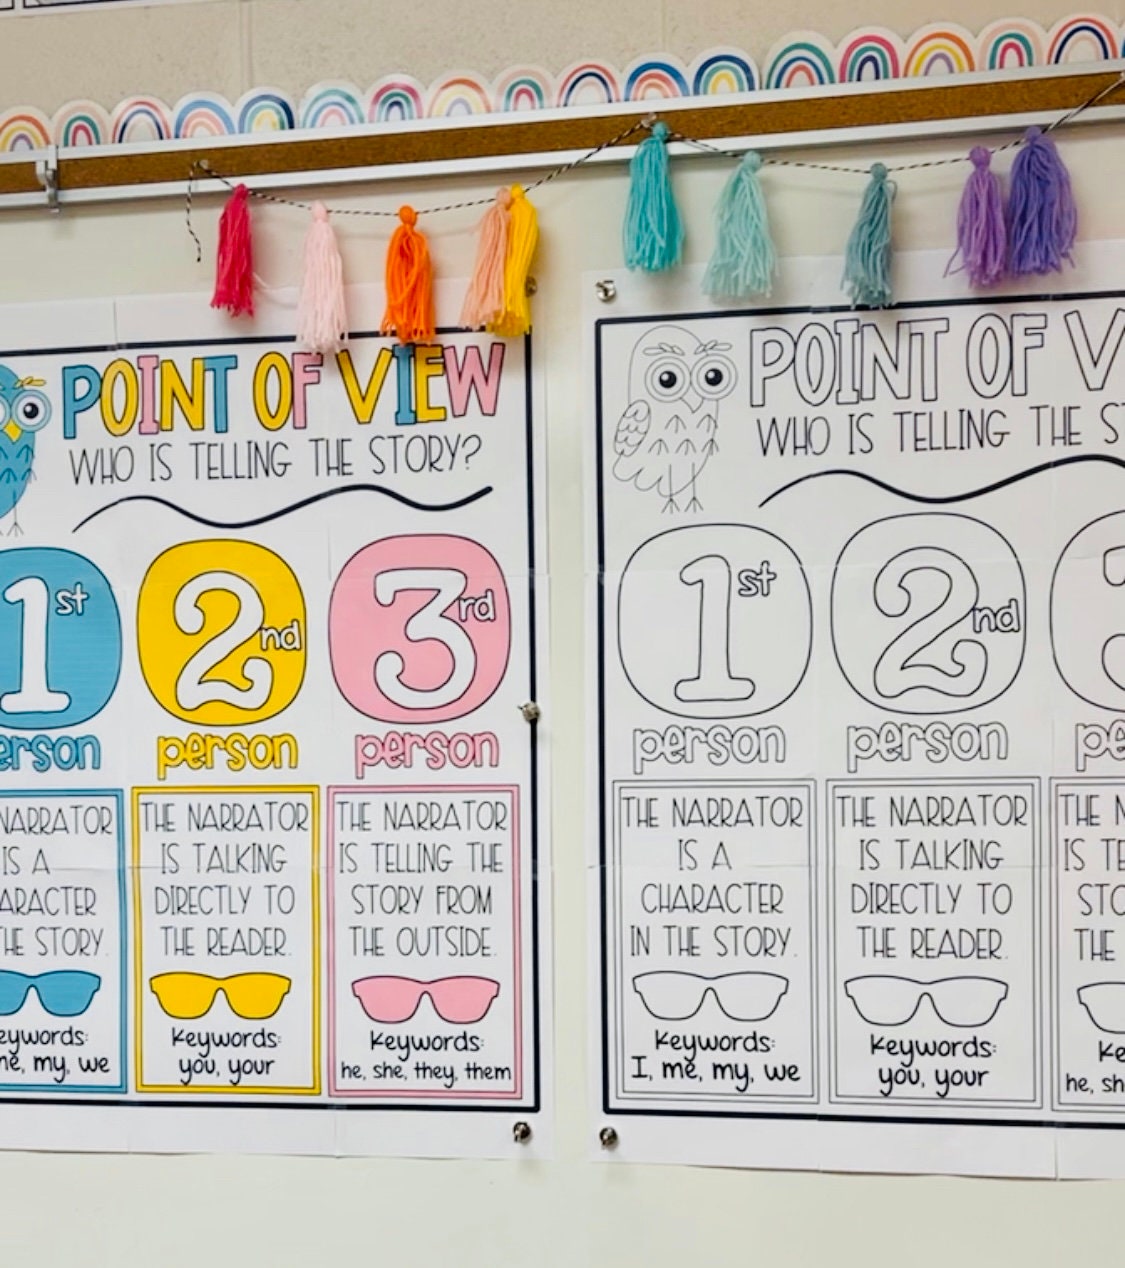 POINT OF VIEW
WHO IS TELLING THE STORY?
1st
2nd
3rd
person
person
NARRATOR
IS A
HE STORY.
my, we
THE NARRATOR
IS TALKING
DIRECTLY TO
THE READER.
Keywords:
you, your
THE NARRATOR
IS TELLING THE
STORY FROM
THE OUTSIDE.
Keywords:
he, she, they, them
POINT OF V
WHO IS TELLING THE S
1st
2nd
person
person
THE NARRATOR
IS A
CHARACTER
IN THE STORY.
Keywords:
I, me, my, we
THE NARRATOR
IS TALKING
DIRECTLY TO
THE READER.
Keywords:
you, your
THE
IS
THE
he,